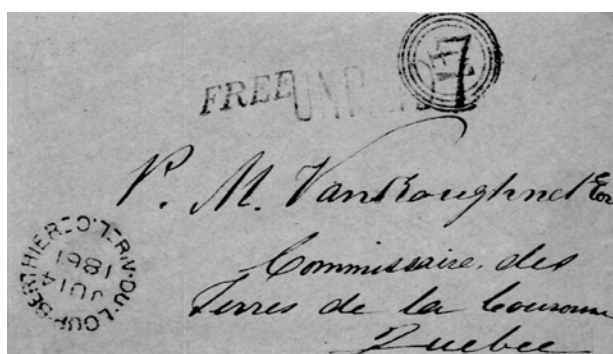 FREE UNPAID 7
P. M. VanKoughnet Esq
Commissaire des
Terres de la Couronne
Quebec
RIV·DU·LOUP·BERTHIER
4
1861